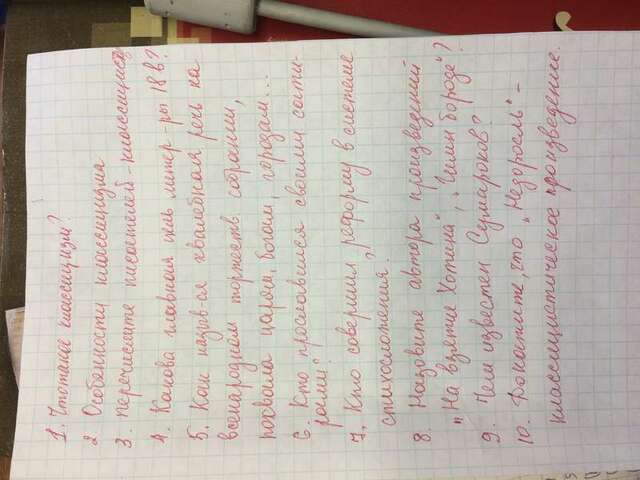 1. Что такое классицизм?
2 Особенности классицизма
3. Перечислите писателей-классицистов
4. Какова главная цель литер-ры 18 в?
5. Как назыв-ся хвалебная речь на
всенародном торжеств. собрании,
похвала царям, богам, городам...
6. Кто прославился своими сати-
рами?
7. Кто совершил реформу в системе
стихосложения?
8. Назовите автора произведений
„На взятие Хотина", „Гимн бороде"?
9. Чем известен Сумароков?
10. Докажите, что „Недоросль" -
классицистическое произведение.